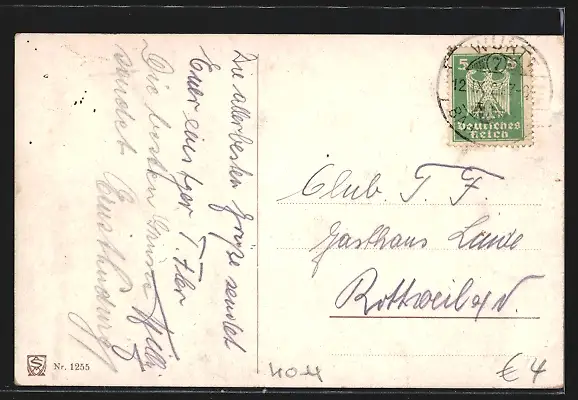 Die allerbesten Grüße sendet
Euer einstger T. Fler
Die besten Grüsse
sendet
5 5
WÜRTT
(7)
12
Deutsches
Reich
Club T. F.
Gasthaus Linde
Rottweil a/N.
Nr. 1255
40M
€ 4